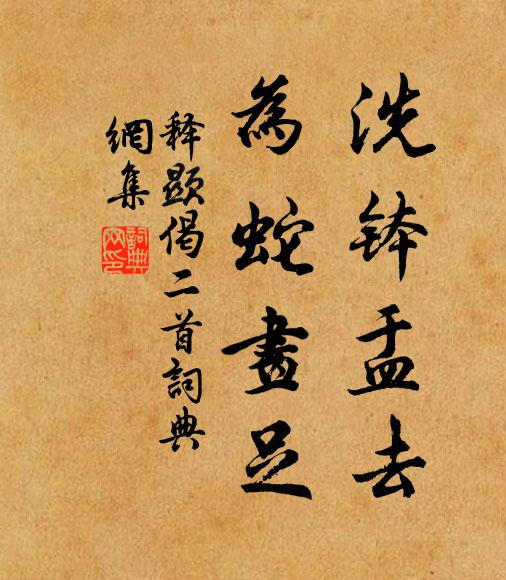 洗鉢盂去
為蛇畫足
释顯偈二首詞典
網集
詞典網印